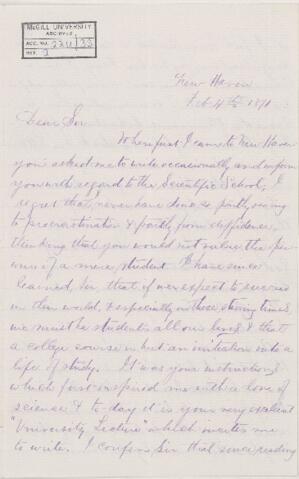 McGILL UNIVERSITY
ARCHIVES
ACC. NO.
REF.
New Haven
Feb 4th 1871
Dear Sir
When first I came to New Haven
you asked me to write occasionally and inform
you with regard to the Scientific School, I
regret that I never have done so partly owing
to procrastination & partly from diffidence,
thinking that you would not value the per-
usal of a mere student. I have since
learned, Sir that if we expect to succeed
in this world, & especially in these stirring times,
we must be students all our lives & that
a college course is but an initiation into a
life of study. It was your instructions
which first inspired me with a love of
science & to-day it is your very excellent
"University Lecture" which incites me
to write. I confess Sir that since reading